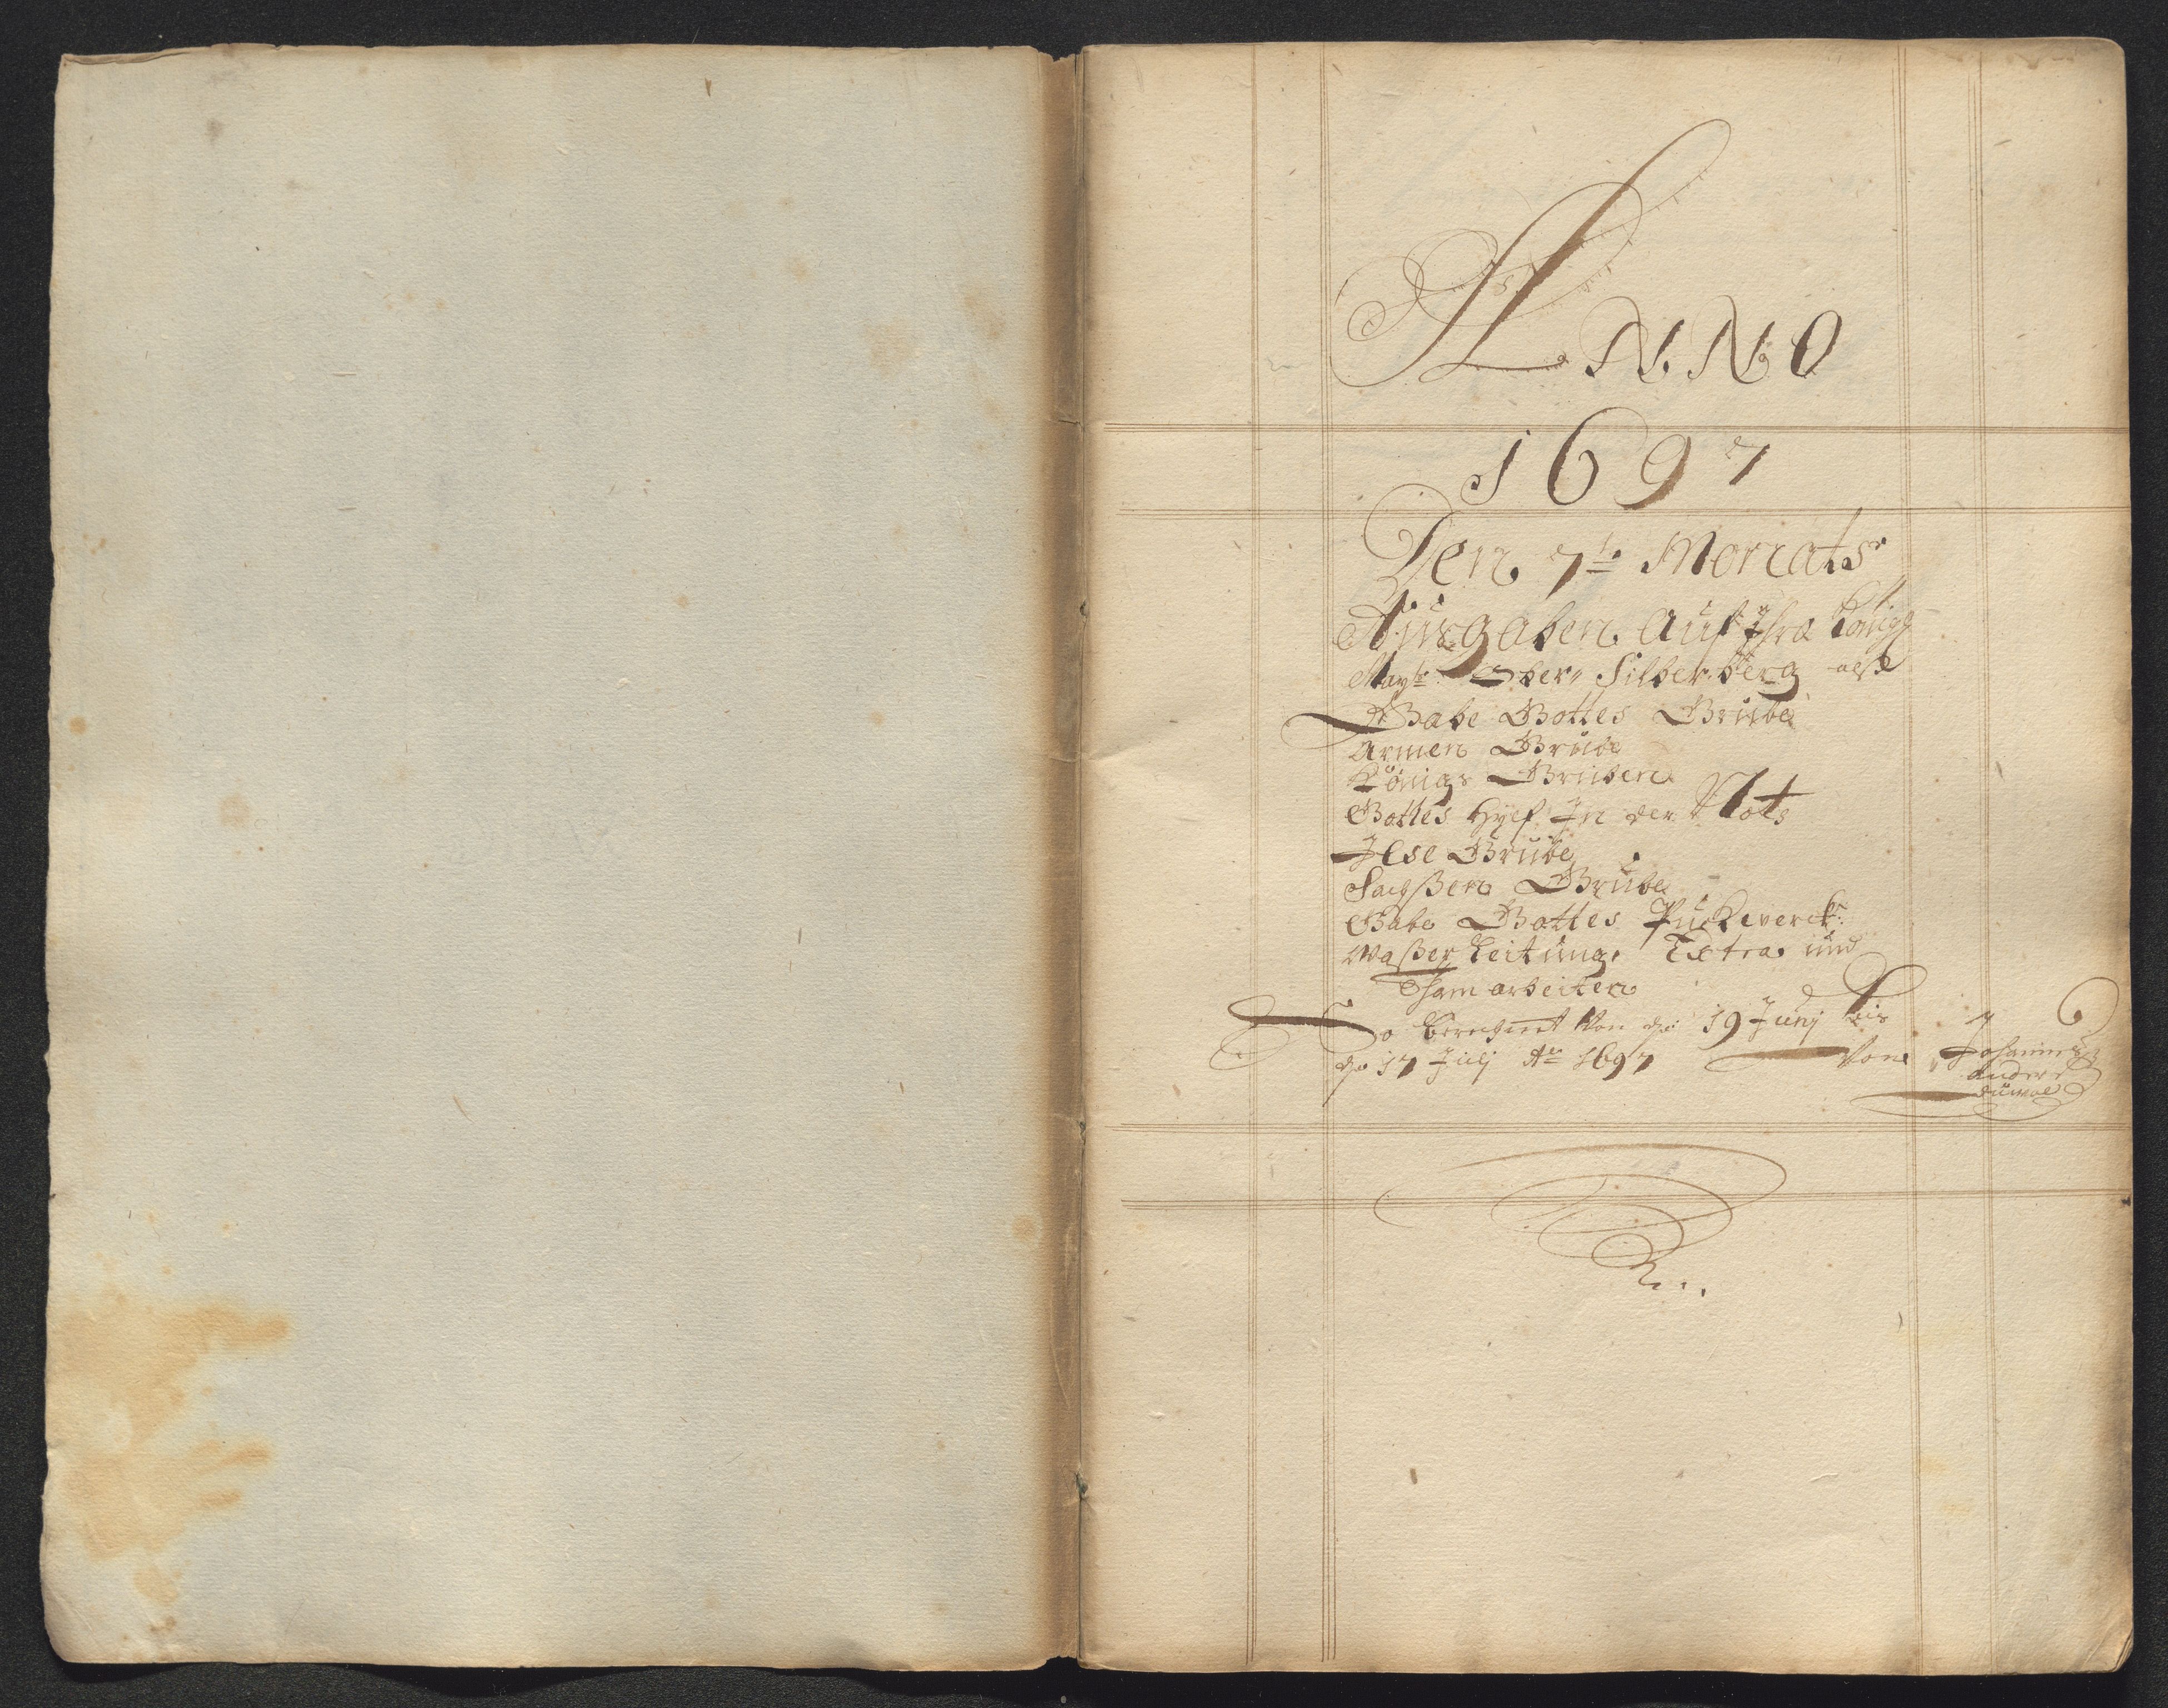 ANNO
1697
Den 7te Monats
Ausgaben Auf Ihra Königl
Maytz Ober Silberberg alß
Gabe Gottes Grube
Armen Grube
Königs Gruben
Gottes Hylf In der Noht
Ilse Grube
Sachßen Grube
Gabe Gottes Puckwerck
Waßer Leitung. Extra und
Tham arbeiten
So berechnet Von dn 19 Junj bis
dn 17 Julj Ao 1697 Von Johannes